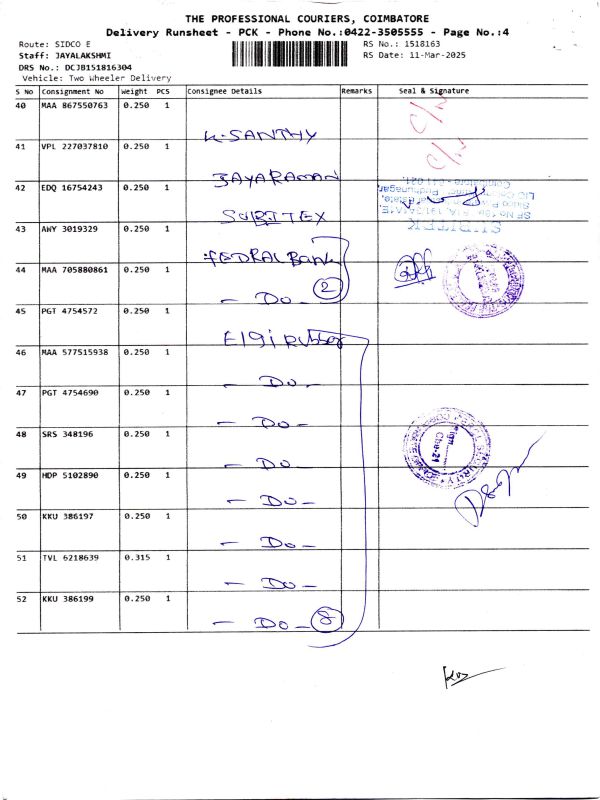 THE PROFESSIONAL COURIERS, COIMBATORE
Delivery Runsheet - PCK - Phone No.:0422-3505555 - Page No.:4
Route: SIDCO E
RS No.: 1518163
Staff: JAYALAKSHMI
RS Date: 11-Mar-2025
DRS No.: DCJB151816304
Vehicle: Two Wheeler Delivery
S No Consignment No Weight PCS Consignee Details Remarks Seal & Signature
40 MAA 867550763 0.250 1
K. SANTHY
41 VPL 227037810 0.250 1
JAYARAMAN
42 EDQ 16754243 0.250 1
SUBITEX
43 AWY 3019329 0.250 1
FEDRAL Bank
44 MAA 705880861 0.250 1
- Do - 2
45 PGT 4754572 0.250 1
Elgi Rubber
46 MAA 577515938 0.250 1
- Do -
47 PGT 4754690 0.250 1
- Do -
48 SRS 348196 0.250 1
- Do -
49 HDP 5102890 0.250 1
- Do -
50 KKU 386197 0.250 1
- Do -
51 TVL 6218639 0.315 1
- Do -
52 KKU 386199 0.250 1
- Do - 8